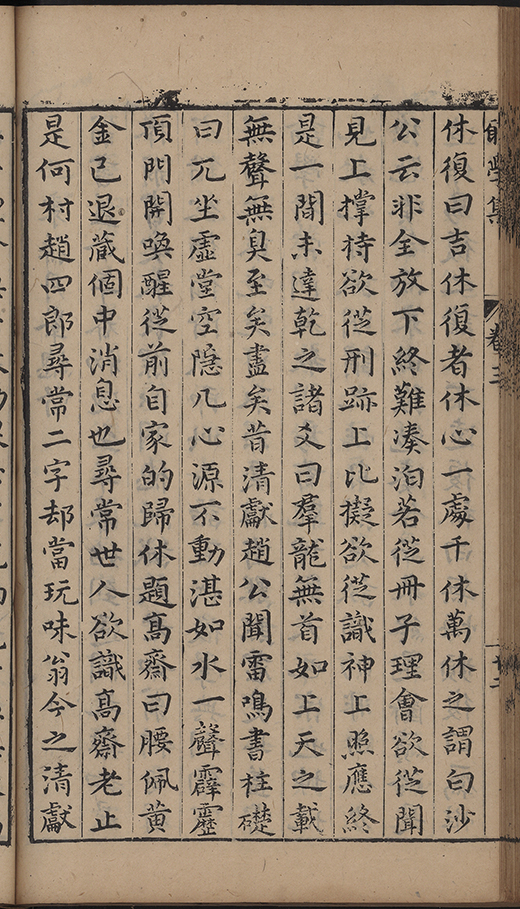 學集 卷三
休復曰吉休復者休心一處千休萬休之謂白沙
公云非全放下終難凑泊若從冊子理會欲從聞
見上撐持欲從刑跡上比擬欲從識神上照應終
是一間未達乾之諸爻曰羣龍無首如上天之載
無聲無臭至矣盡矣昔清獻趙公聞雷鳴書柱礎
曰兀坐虛堂空隱几心源不動湛如水一聲霹靂
頂門開喚醒從前自家的歸休題高齋曰腰佩黃
金已退藏個中消息也尋常世人欲識高齋老止
是何村趙四郎尋常二字却當玩味翁今之清獻